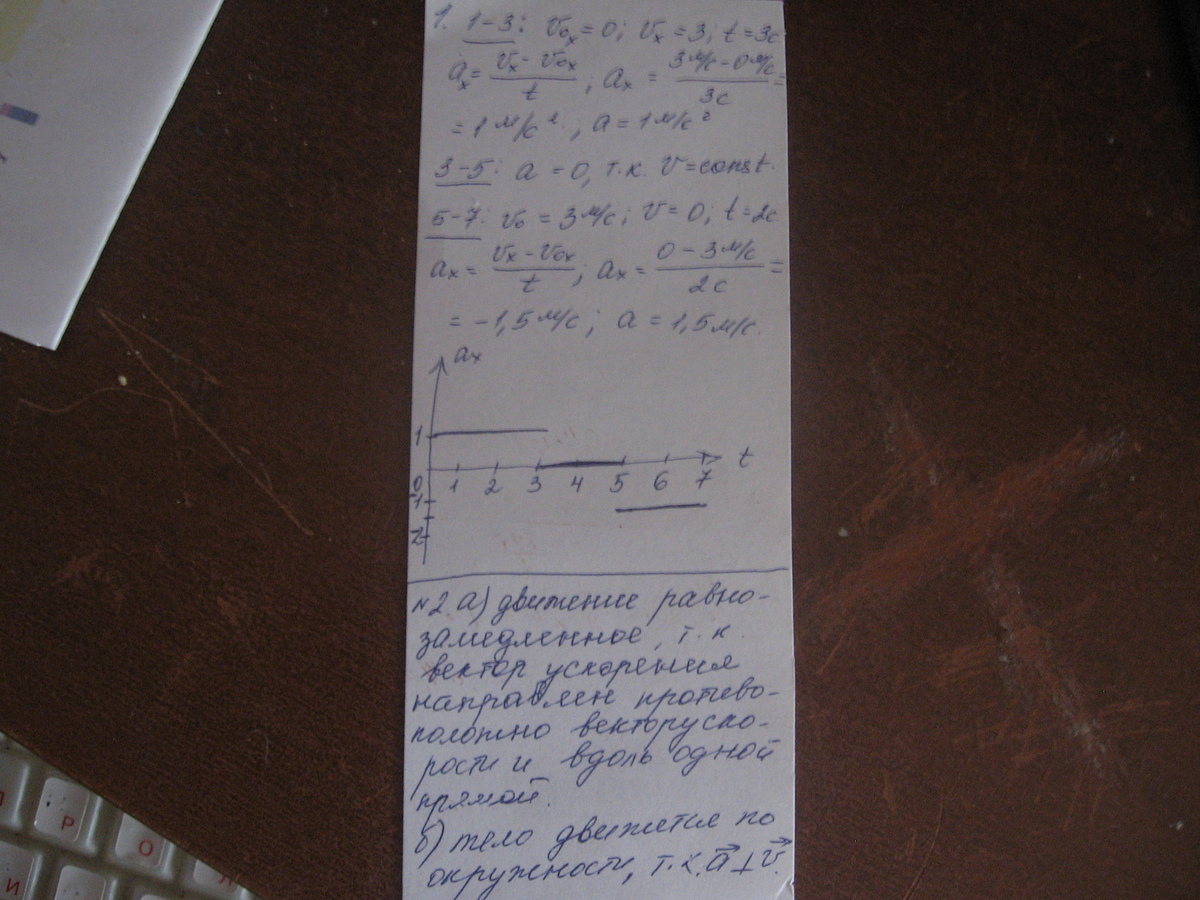 1. 1-3: v₀ₓ = 0; vₓ = 3; t = 3с
aₓ = (vₓ - v₀ₓ)/t ; aₓ = (3 м/с - 0 м/с)/3с =
= 1 м/с², a = 1 м/с²
3-5: a = 0, т.к. v = const.
5-7: v₀ = 3 м/с; v = 0; t = 2с
aₓ = (vₓ - v₀ₓ)/t ; aₓ = (0 - 3 м/с)/2с =
= -1,5 м/с; a = 1,5 м/с.
aₓ
1
t
0 1 2 3 4 5 6 7
-1
-2
№2 а) движение равно-
замедленное, т.к.
вектор ускорения
направлен противо-
положно вектору ско-
рости и вдоль одной
прямой.
б) тело движется по
окружности, т.к. a⃗ ⊥ v⃗.
Р
О
Л
И